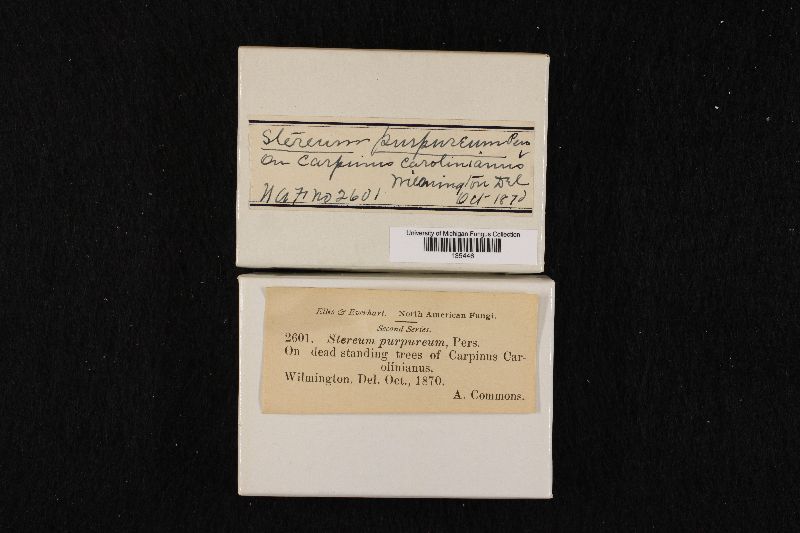 Stereum purpureum Pers
On Carpinus carolinianus
Wilmington Del
N A F no 2601 Oct 1870
University of Michigan Fungus Collection
Ellis & Everhart. North American Fungi.
Second Series.
2601. Stereum purpureum, Pers.
On dead standing trees of Carpinus Car-
olinianus.
Wilmington, Del. Oct., 1870.
A. Commons.